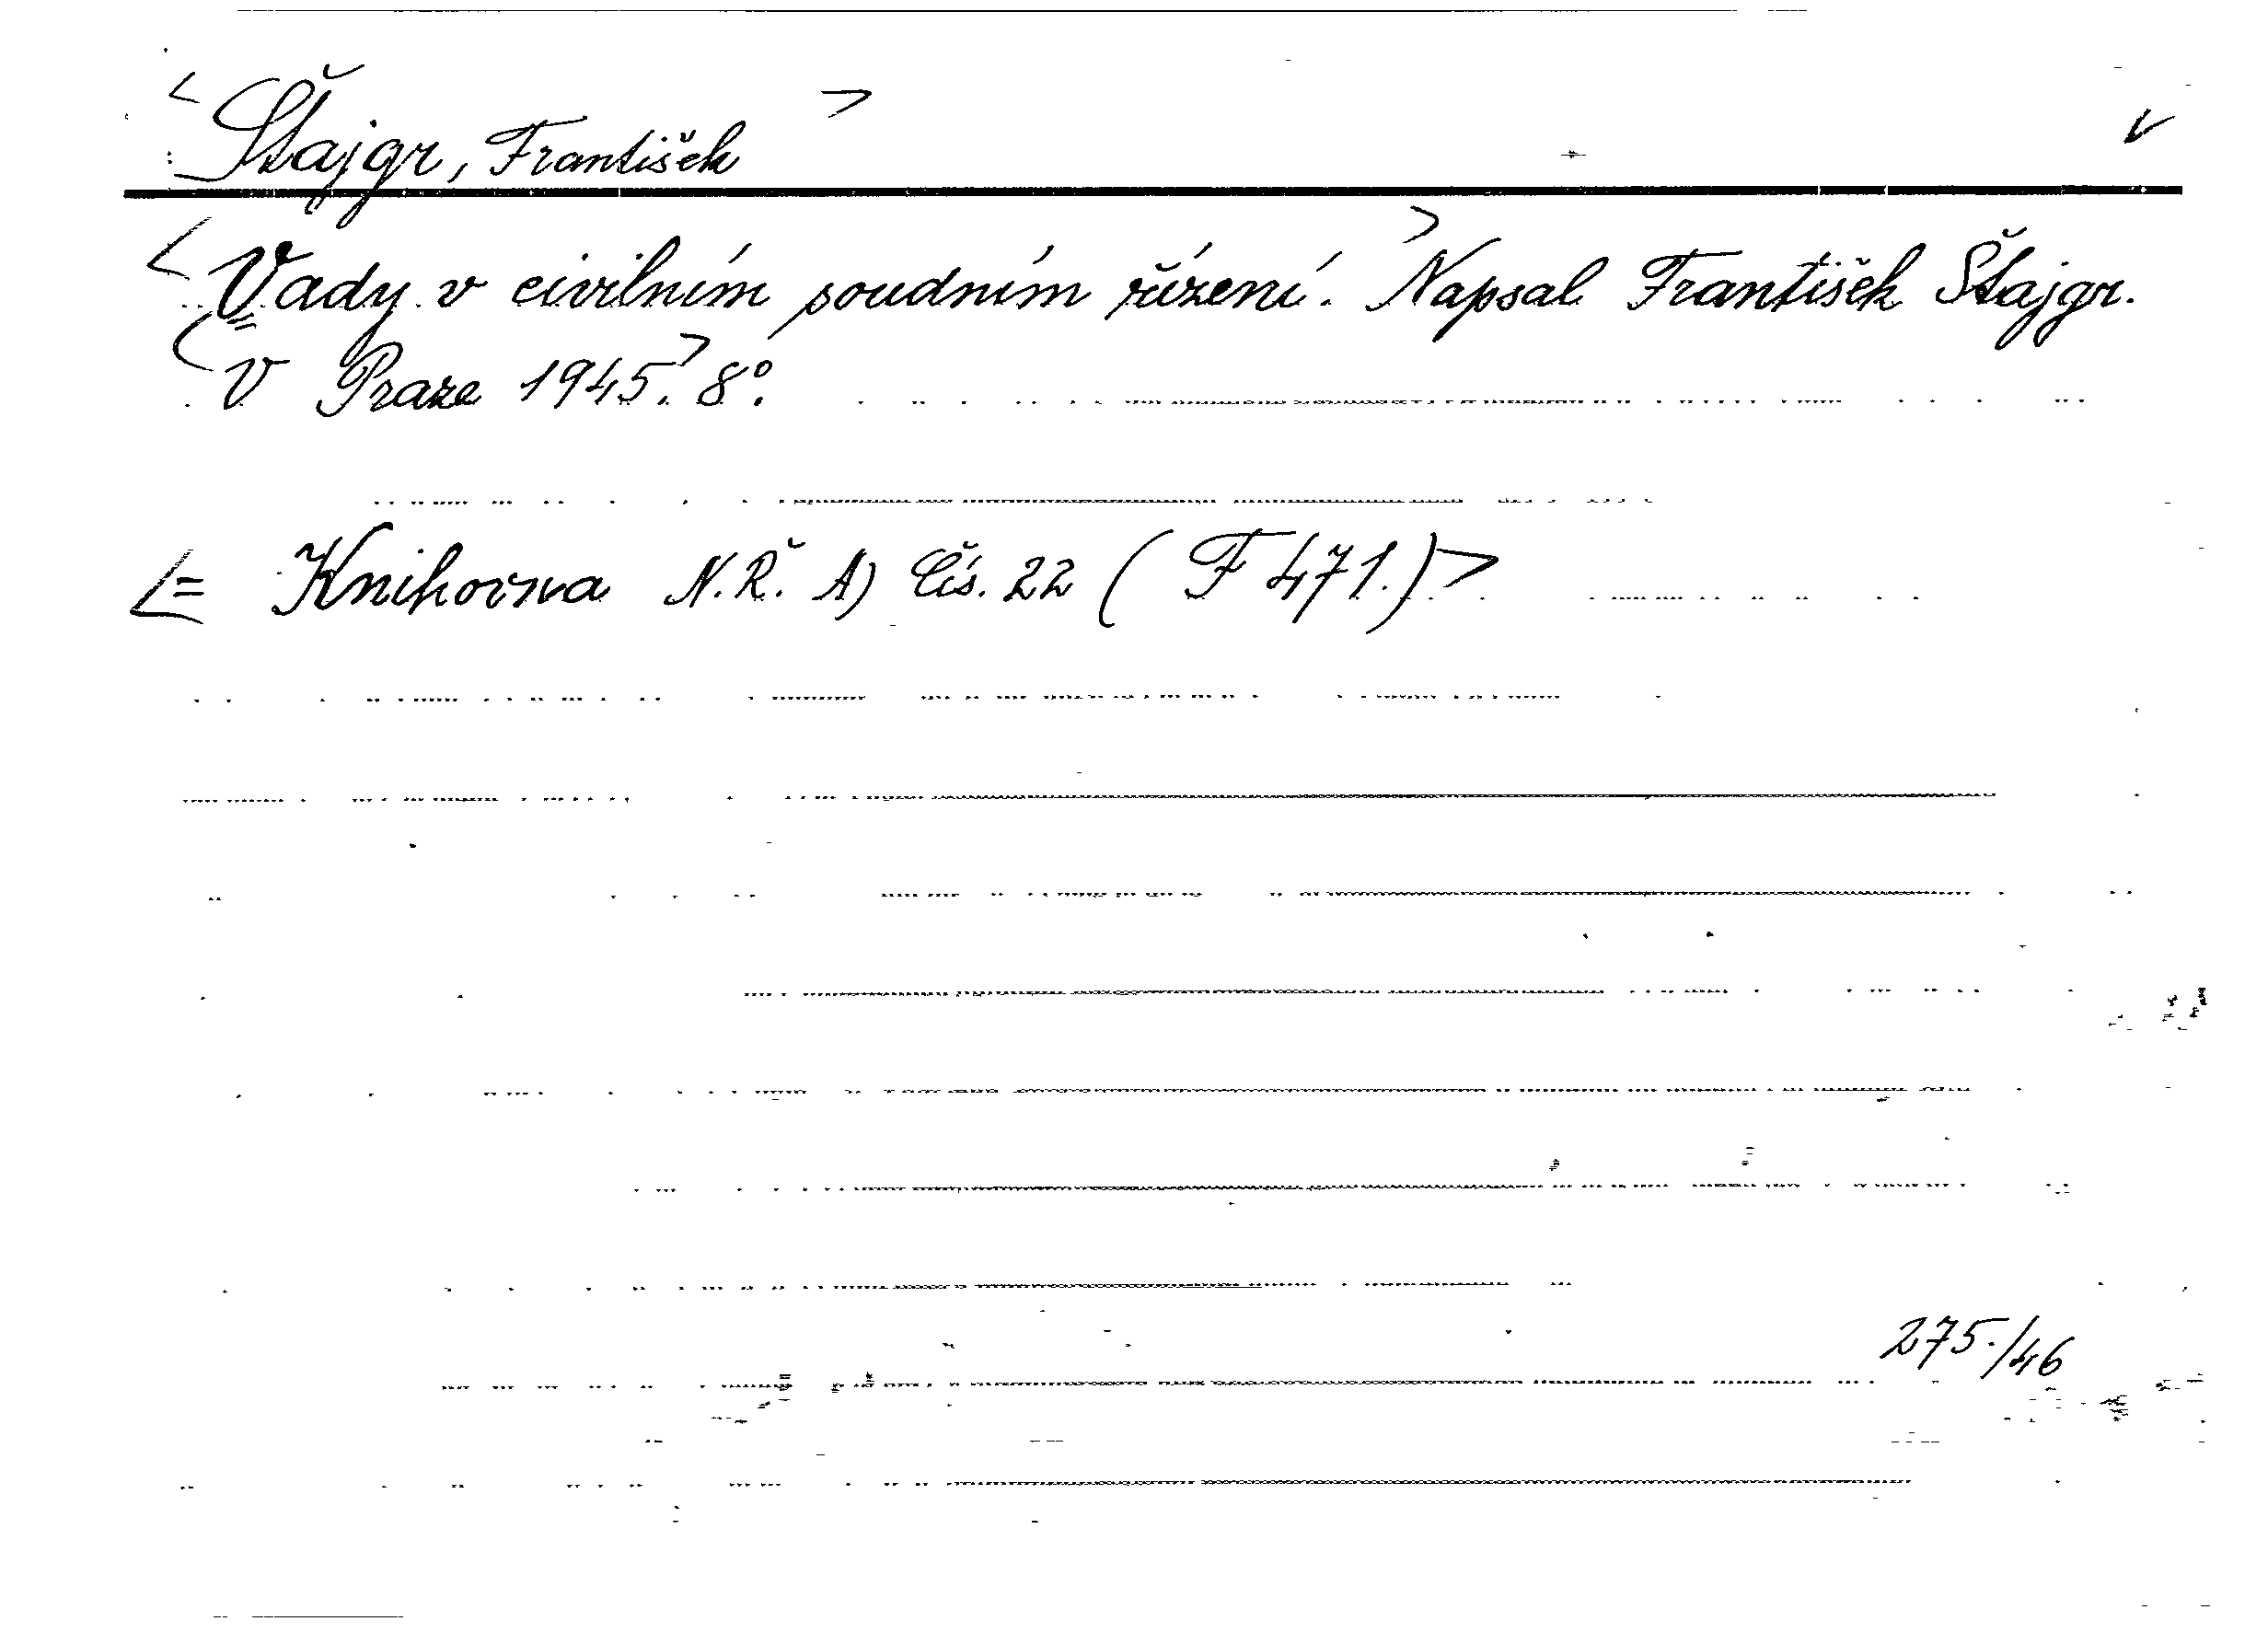 <Štajgr, František> v
<Vady v civilním soudním řízení.> Napsal František Štajgr.
<V Praze 1945.> 8°.
<= Knihovna N.Ř. A) Čís. 22 (F 471.)>
275./46